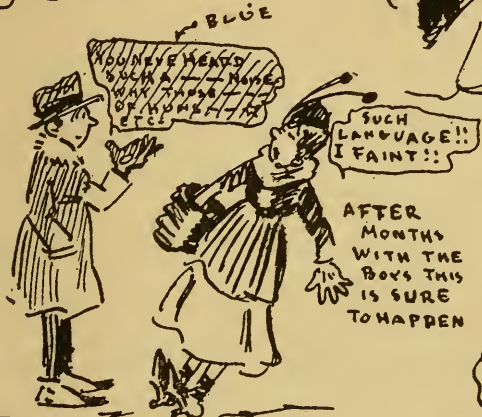 BLUE
YOU NEVER HEARD
SUCH A — —
WHY THOSE — —
OF — —
ETC
SUCH
LANGUAGE!!
I FAINT!!
AFTER
MONTHS
WITH THE
BOYS THIS
IS SURE
TO HAPPEN